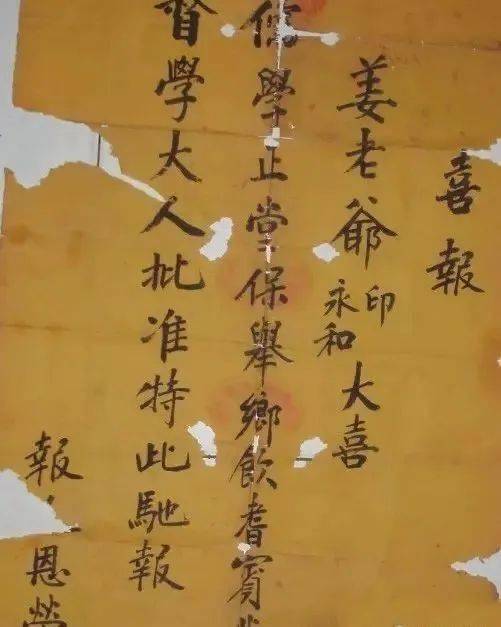 喜報
姜老爺印永和大喜
學正堂保舉鄉飲耆賓
督學大人批准特此馳報
報人恩榮